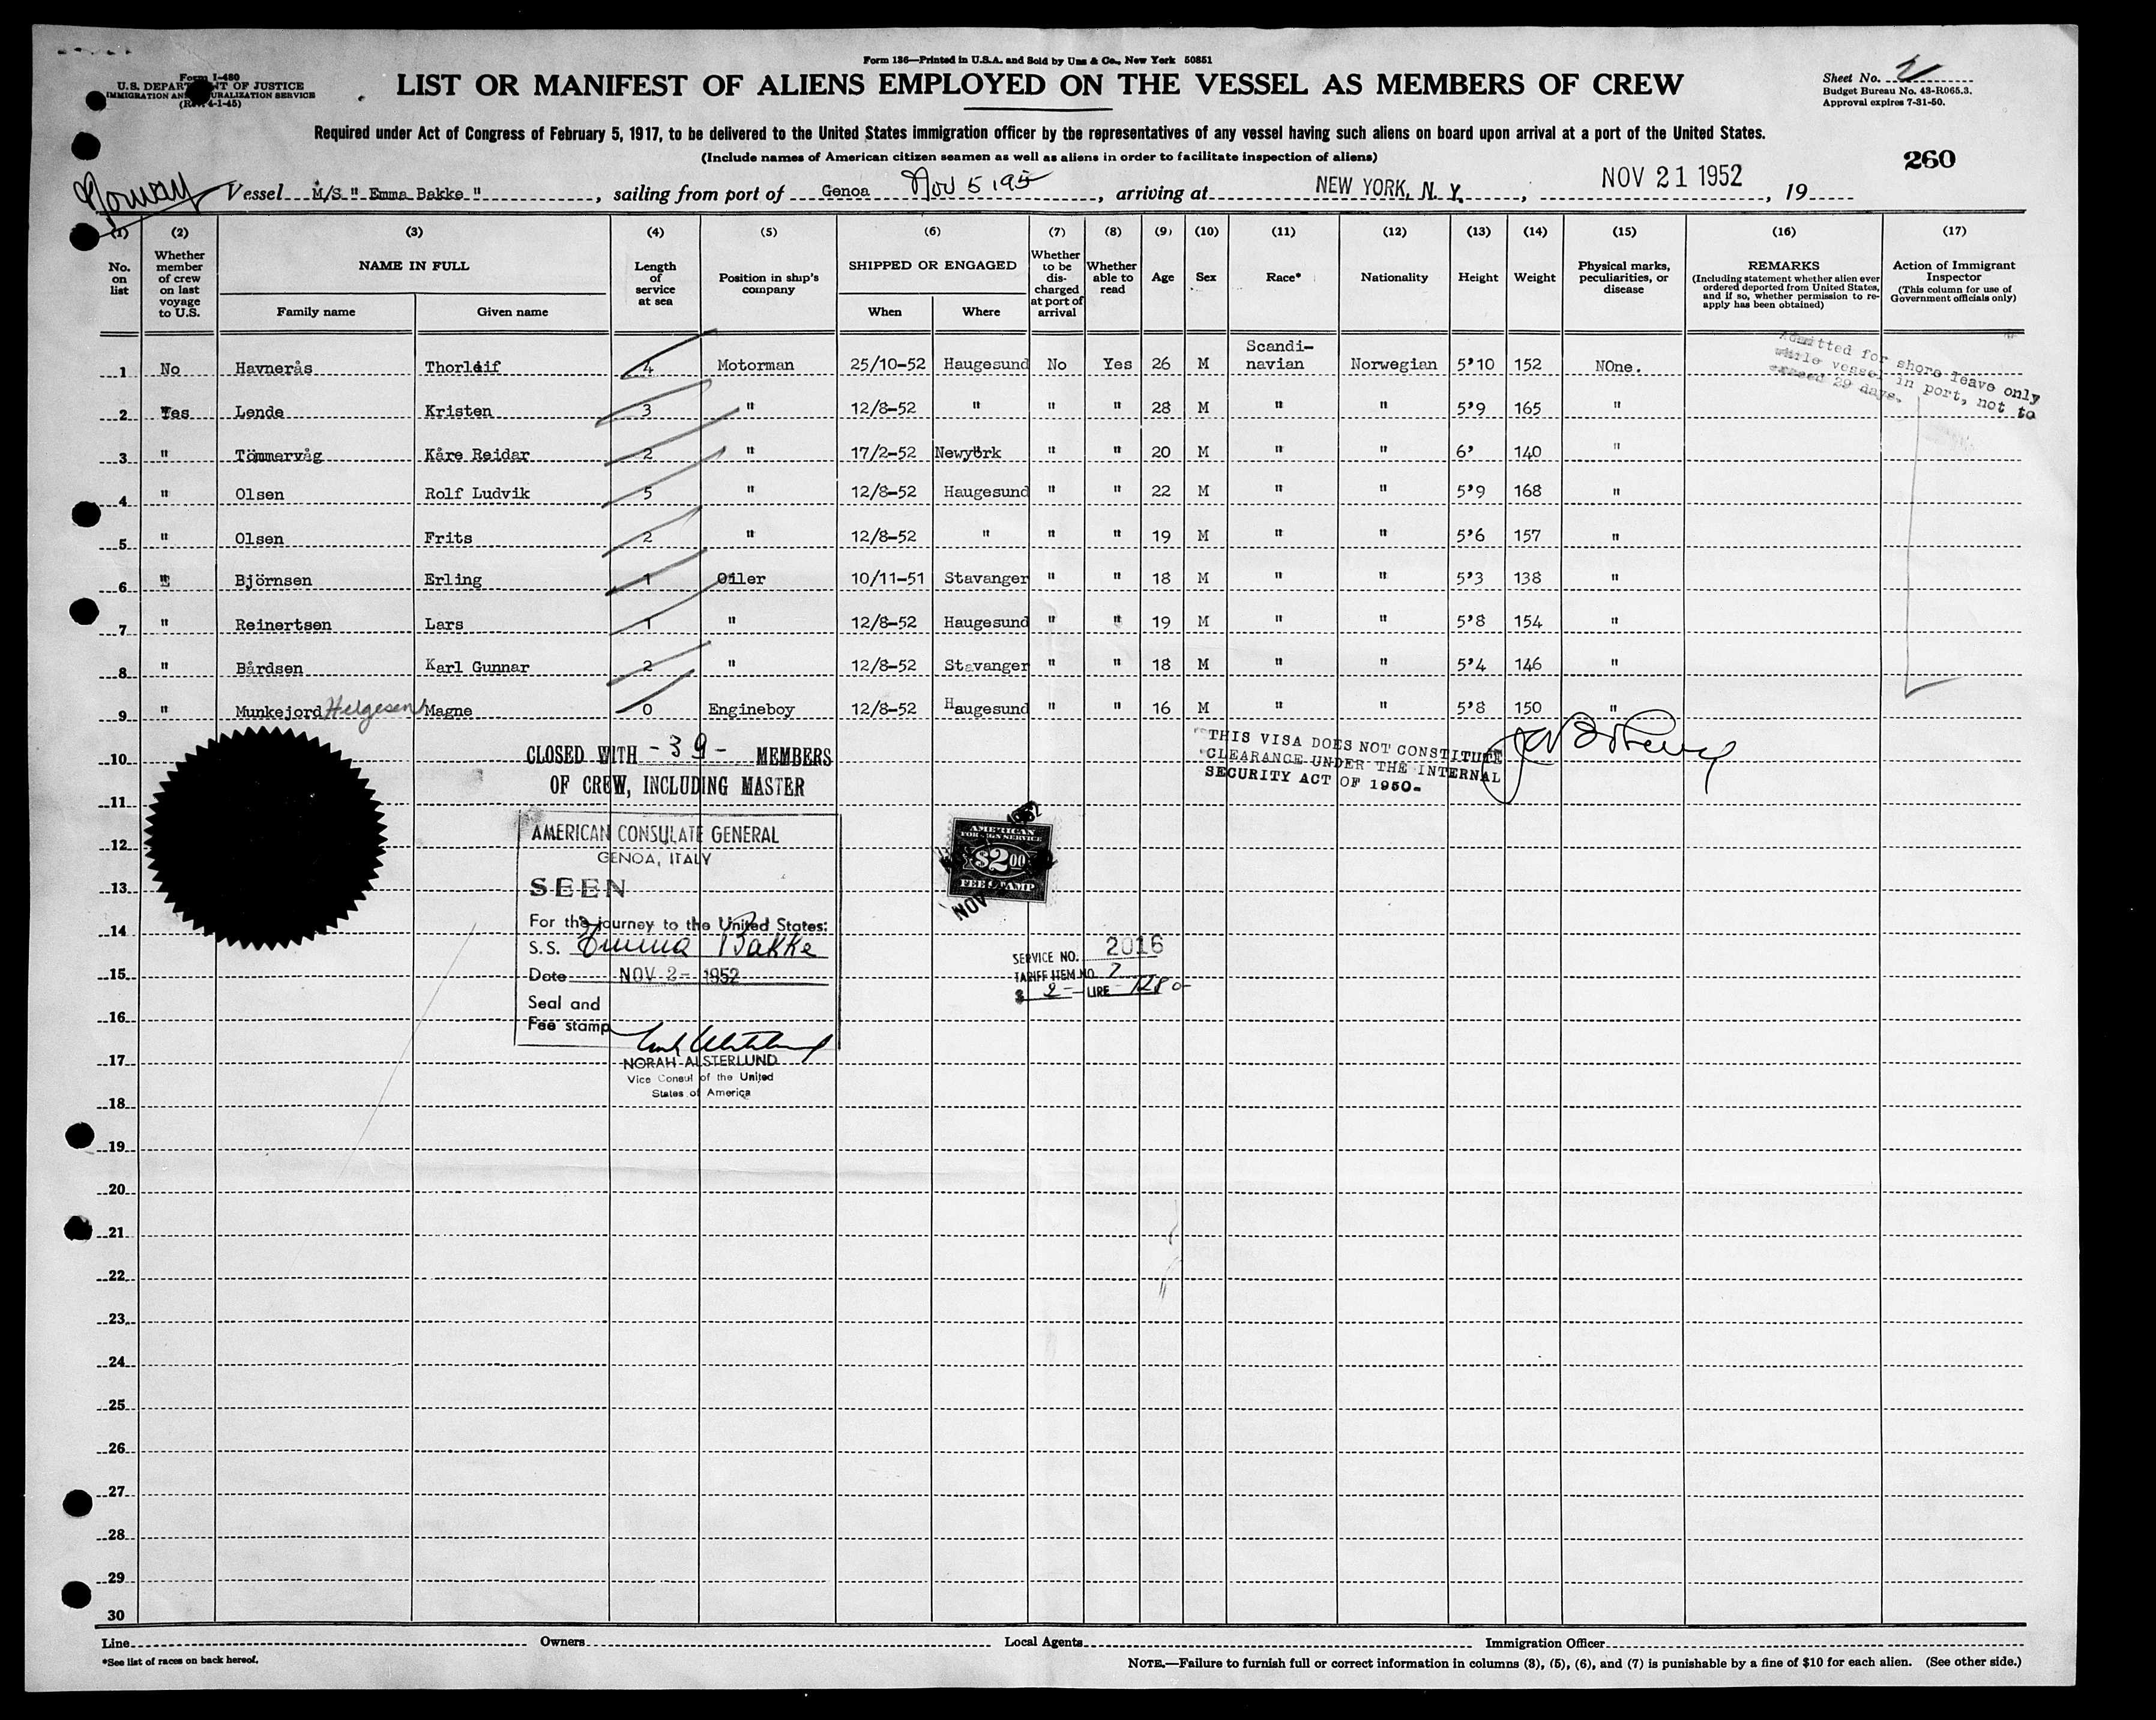 Form 136—Printed in U.S.A. and Sold by Unz & Co., New York 50851
Form I-480
U.S. DEPARTMENT OF JUSTICE
IMMIGRATION AND NATURALIZATION SERVICE
(Rev. 4-1-45)
LIST OR MANIFEST OF ALIENS EMPLOYED ON THE VESSEL AS MEMBERS OF CREW
Sheet No. 2
Budget Bureau No. 43-R065.3.
Approval expires 7-31-50.
Required under Act of Congress of February 5, 1917, to be delivered to the United States immigration officer by the representatives of any vessel having such aliens on board upon arrival at a port of the United States.
(Include names of American citizen seamen as well as aliens in order to facilitate inspection of aliens)
260
Norway Vessel M/S " Emma Bakke ", sailing from port of Genoa Nov 5 195, arriving at NEW YORK, N. Y., NOV 21 1952, 19
(1) (2) (3) (4) (5) (6) (7) (8) (9) (10) (11) (12) (13) (14) (15) (16) (17)
No. on list
Whether member of crew on last voyage to U.S.
NAME IN FULL
Family name Given name
Length of service at sea
Position in ship's company
SHIPPED OR ENGAGED
When Where
Whether to be discharged at port of arrival
Whether able to read
Age
Sex
Race*
Nationality
Height
Weight
Physical marks, peculiarities, or disease
REMARKS
(Including statement whether alien ever ordered deported from United States, and if so, whether permission to re-apply has been obtained)
Action of Immigrant Inspector
(This column for use of Government officials only)
1 No Havnerås Thorleif 4 Motorman 25/10-52 Haugesund No Yes 26 M Scandi-navian Norwegian 5'10 152 NOne.
Admitted for shore leave only
while vessel in port, not to
exceed 29 days.
2 Yes Lende Kristen 3 " 12/8-52 " " " 28 M " " 5'9 165 "
3 " Tömmervåg Kåre Reidar 2 " 17/2-52 Newyörk " " 20 M " " 6' 140 "
4 " Olsen Rolf Ludvik 5 " 12/8-52 Haugesund " " 22 M " " 5'9 168 "
5 " Olsen Frits 2 " 12/8-52 " " " 19 M " " 5'6 157 "
6 " Björnsen Erling 1 Oiler 10/11-51 Stavanger " " 18 M " " 5'3 138 "
7 " Reinertsen Lars 1 " 12/8-52 Haugesund " " 19 M " " 5'8 154 "
8 " Bårdsen Karl Gunnar 2 " 12/8-52 Stavanger " " 18 M " " 5'4 146 "
9 " Munkejord Helgesen Magne 0 Engineboy 12/8-52 Haugesund " " 16 M " " 5'8 150 "
10
11
12
13
14
15
16
17
18
19
20
21
22
23
24
25
26
27
28
29
30
CLOSED WITH -39- MEMBERS
OF CREW, INCLUDING MASTER
THIS VISA DOES NOT CONSTITUTE
CLEARANCE UNDER THE INTERNAL
SECURITY ACT OF 1950-
AMERICAN CONSULATE GENERAL
GENOA, ITALY
SEEN
For the journey to the United States:
S.S. Emma Bakke
Date NOV 2- 1952
Seal and
Fee stamp
NORAH ALSTERLUND
Vice Consul of the United
States of America
AMERICAN
FOREIGN SERVICE
$2.00
FEE STAMP
NOV
SERVICE NO. 2016
TARIFF ITEM NO. 7
$ 2- LIRE 1280-
Line Owners Local Agents Immigration Officer
*See list of races on back hereof.
NOTE.—Failure to furnish full or correct information in columns (3), (5), (6), and (7) is punishable by a fine of $10 for each alien. (See other side.)